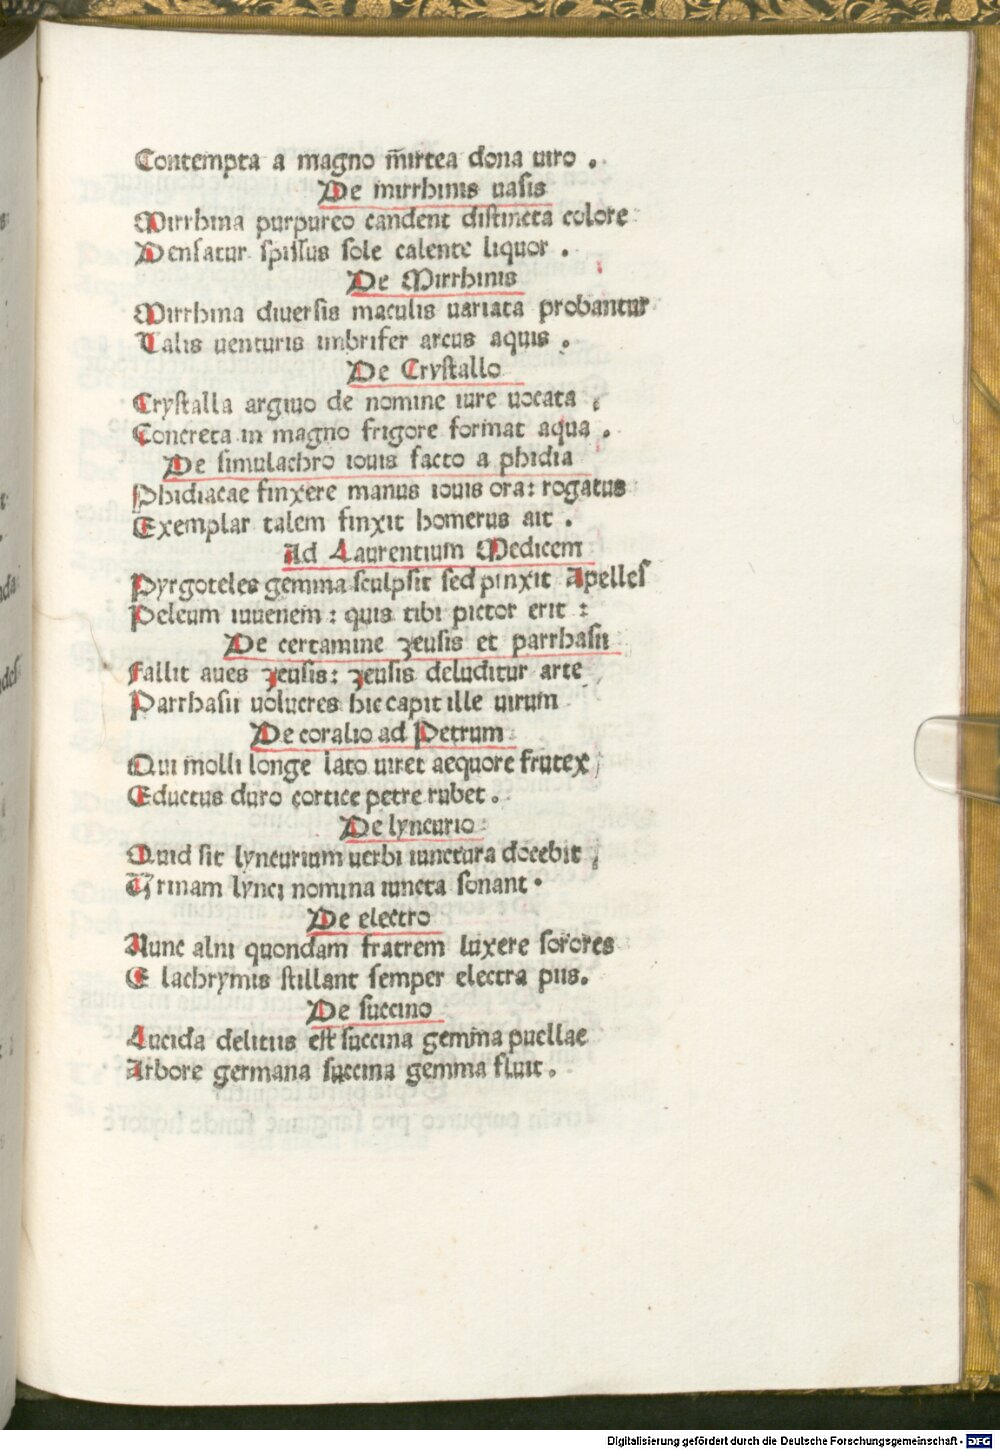 Contempta a magno m̄irtea dona uiro .
De mirrhinis uasis
Mirrhina purpureo candent distincta colore
Densatur spissus sole calente liquor .
De Mirrhinis
Mirrhina diuersis maculis uariata probantur
Talis uenturis imbrifer arcus aquis .
De Crystallo
Crystalla argiuo de nomine iure uocata ;
Concreta in magno frigore format aqua .
De simulachro iouis facto a phidia
Phidiacae finxere manus iouis ora: rogatus
Exemplar talem finxit homerus ait .
Ad Laurentium Medicem
Pyrgoteles gemma sculpsit sed pinxit Apelles
Peleum iuuenem : quis tibi pictor erit :
De certamine zeusis et parrhasii
Fallit aues zeusis: zeusis deluditur arte
Parrhasii uolucres hic capit ille uirum
De coralio ad Petrum
Qui molli longe lato uiret aequore frutex ;
Eductus duro cortice petre rubet .
De lyncurio
Quid sit lyncurium uerbi iunctura docebit ;
Urinam lynci nomina iuncta sonant .
De electro
Nunc alni quondam fratrem luxere sorores
E lachrymis stillant semper electra piis.
De succino
Lucida delitiis est succina gemma puellae
Arbore germana succina gemma fluit .
Digitalisierung gefördert durch die Deutsche Forschungsgemeinschaft - DFG